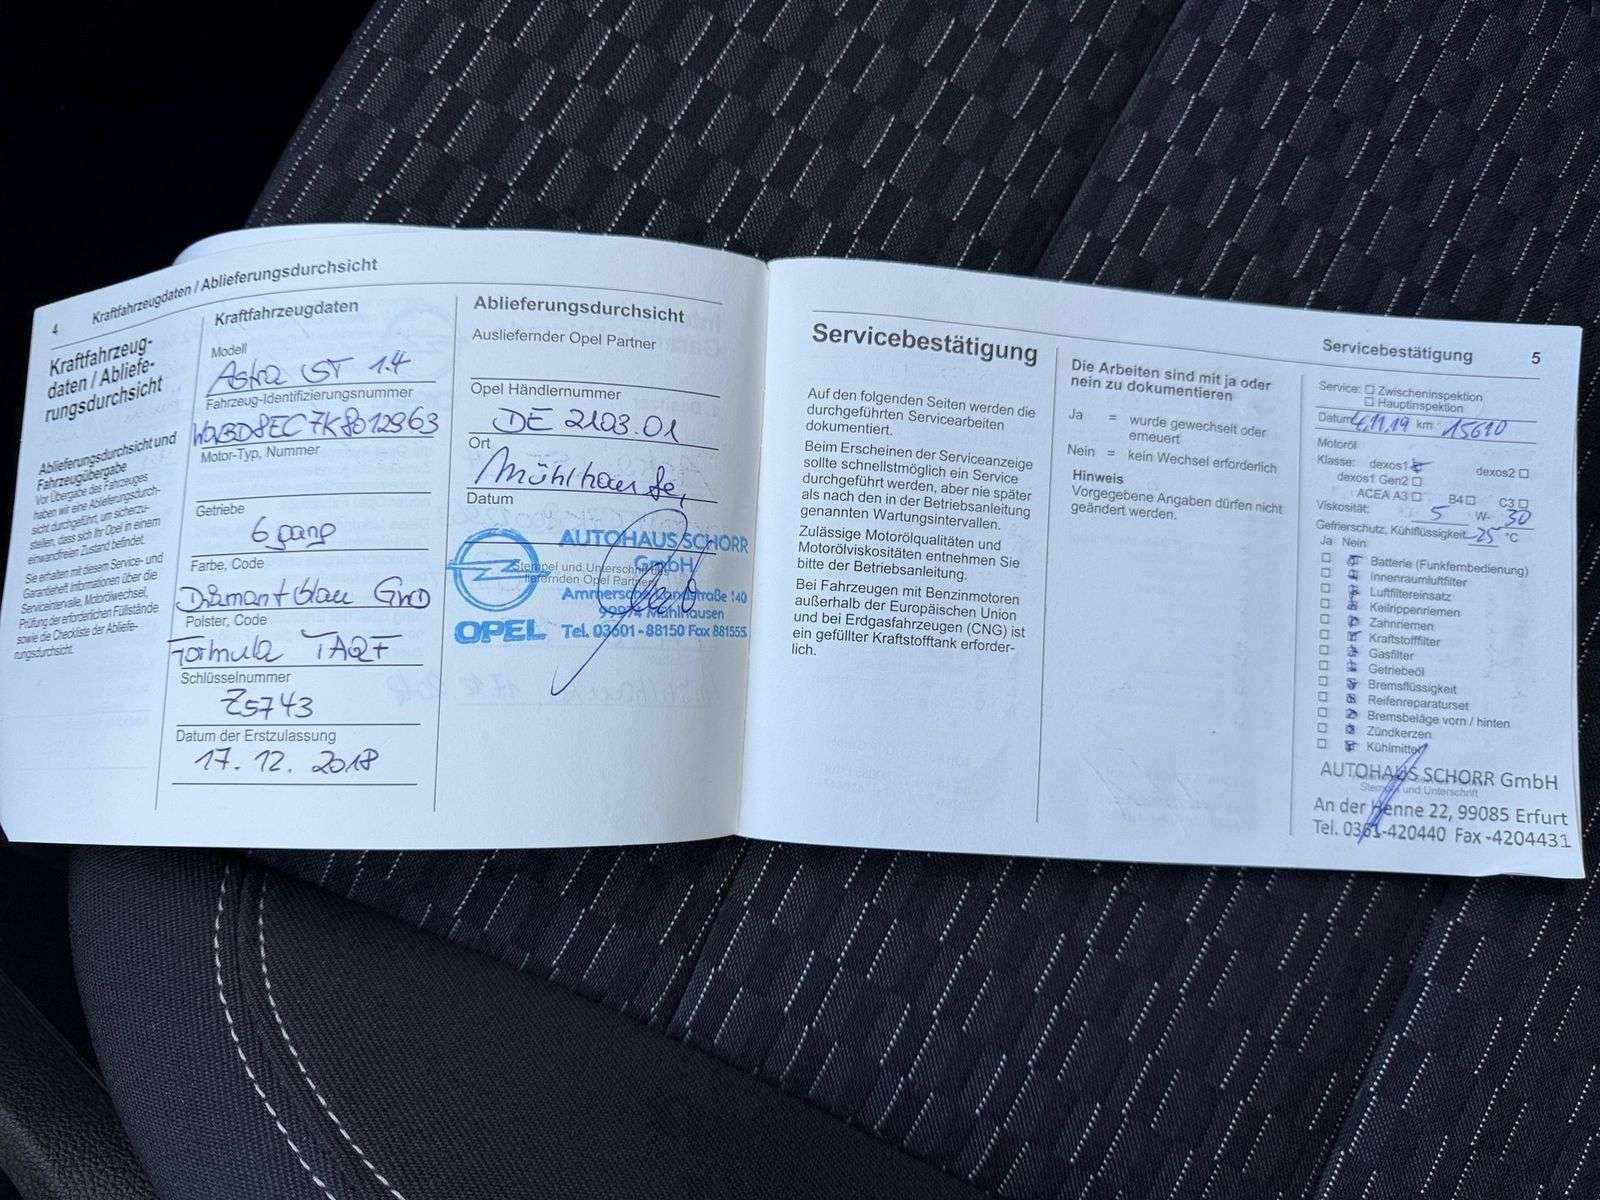 4 Kraftfahrzeugdaten / Ablieferungsdurchsicht
Kraftfahrzeug-
daten / Abliefe-
rungsdurchsicht
Ablieferungsdurchsicht und
Fahrzeugübergabe
Vor Übergabe des Fahrzeuges
haben wir eine Ablieferungsdurch-
sicht durchgeführt, um sicherzu-
stellen, dass sich Ihr Opel in einem
einwandfreien Zustand befindet.
Sie erhalten mit diesem Service- und
Garantieheft Informationen über die
Serviceintervalle, Motorölwechsel,
Prüfung der erforderlichen Füllstände
sowie die Checkliste der Abliefe-
rungsdurchsicht.
Kraftfahrzeugdaten
Modell
Astra ST 1.4
Fahrzeug-Identifizierungsnummer
W0VBD8EC7K8012963
Motor-Typ, Nummer
Getriebe
6 gang
Farbe, Code
Diamantblau GWD
Polster, Code
Formula TAQF
Schlüsselnummer
Z5743
Datum der Erstzulassung
17.12.2018
Ablieferungsdurchsicht
Ausliefernder Opel Partner
Opel Händlernummer
DE 2103.01
Ort
Mühlhausen
Datum
AUTOHAUS SCHORR
GmbH
Stempel und Unterschrift
liefernden Opel Partners
Ammersche Landstraße 140
99974 Mühlhausen
OPEL Tel. 03601-88150 Fax 881555
Servicebestätigung 5
Servicebestätigung
Auf den folgenden Seiten werden die
durchgeführten Servicearbeiten
dokumentiert.
Beim Erscheinen der Serviceanzeige
sollte schnellstmöglich ein Service
durchgeführt werden, aber nie später
als nach den in der Betriebsanleitung
genannten Wartungsintervallen.
Zulässige Motorölqualitäten und
Motorölviskositäten entnehmen Sie
bitte der Betriebsanleitung.
Bei Fahrzeugen mit Benzinmotoren
außerhalb der Europäischen Union
und bei Erdgasfahrzeugen (CNG) ist
ein gefüllter Kraftstofftank erforder-
lich.
Die Arbeiten sind mit ja oder
nein zu dokumentieren
Ja = wurde gewechselt oder
erneuert
Nein = kein Wechsel erforderlich
Hinweis
Vorgegebene Angaben dürfen nicht
geändert werden.
Service: Zwischeninspektion
Hauptinspektion
Datum 4.11.19 km 15610
Motoröl
Klasse: dexos1 dexos2
dexos1 Gen2
ACEA A3 B4 C3
Viskosität: 5 W- 30
Gefrierschutz, Kühlflüssigkeit -25 °C
Ja Nein
Batterie (Funkfernbedienung)
Innenraumluftfilter
Luftfiltereinsatz
Keilrippenriemen
Zahnriemen
Kraftstofffilter
Gasfilter
Getriebeöl
Bremsflüssigkeit
Reifenreparaturset
Bremsbeläge vorn / hinten
Zündkerzen
Kühlmittel
AUTOHAUS SCHORR GmbH
Stempel und Unterschrift
An der Henne 22, 99085 Erfurt
Tel. 0361-420440 Fax -4204431